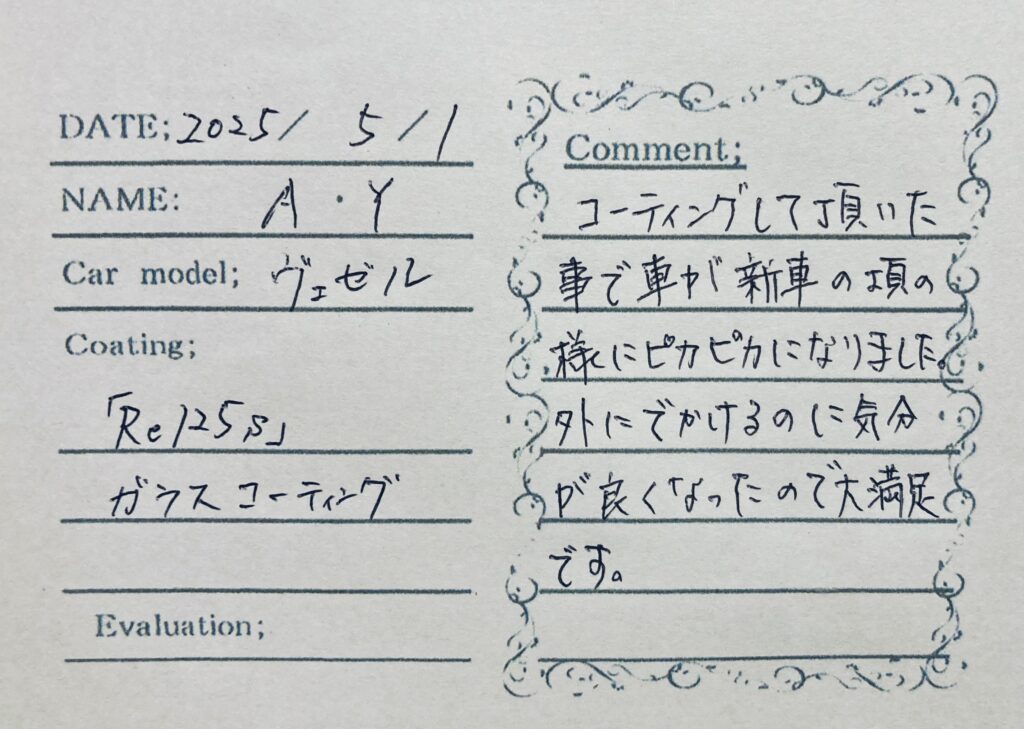 DATE; 2025/ 5/1
NAME: A・Y
Car model; ヴェゼル
Coating;
「Re125β」
ガラスコーティング
Evaluation;
Comment;
コーティングして頂いた
事で車が新車の頃の
様にピカピカになりました。
外にでかけるのに気分
が良くなったので大満足
です。